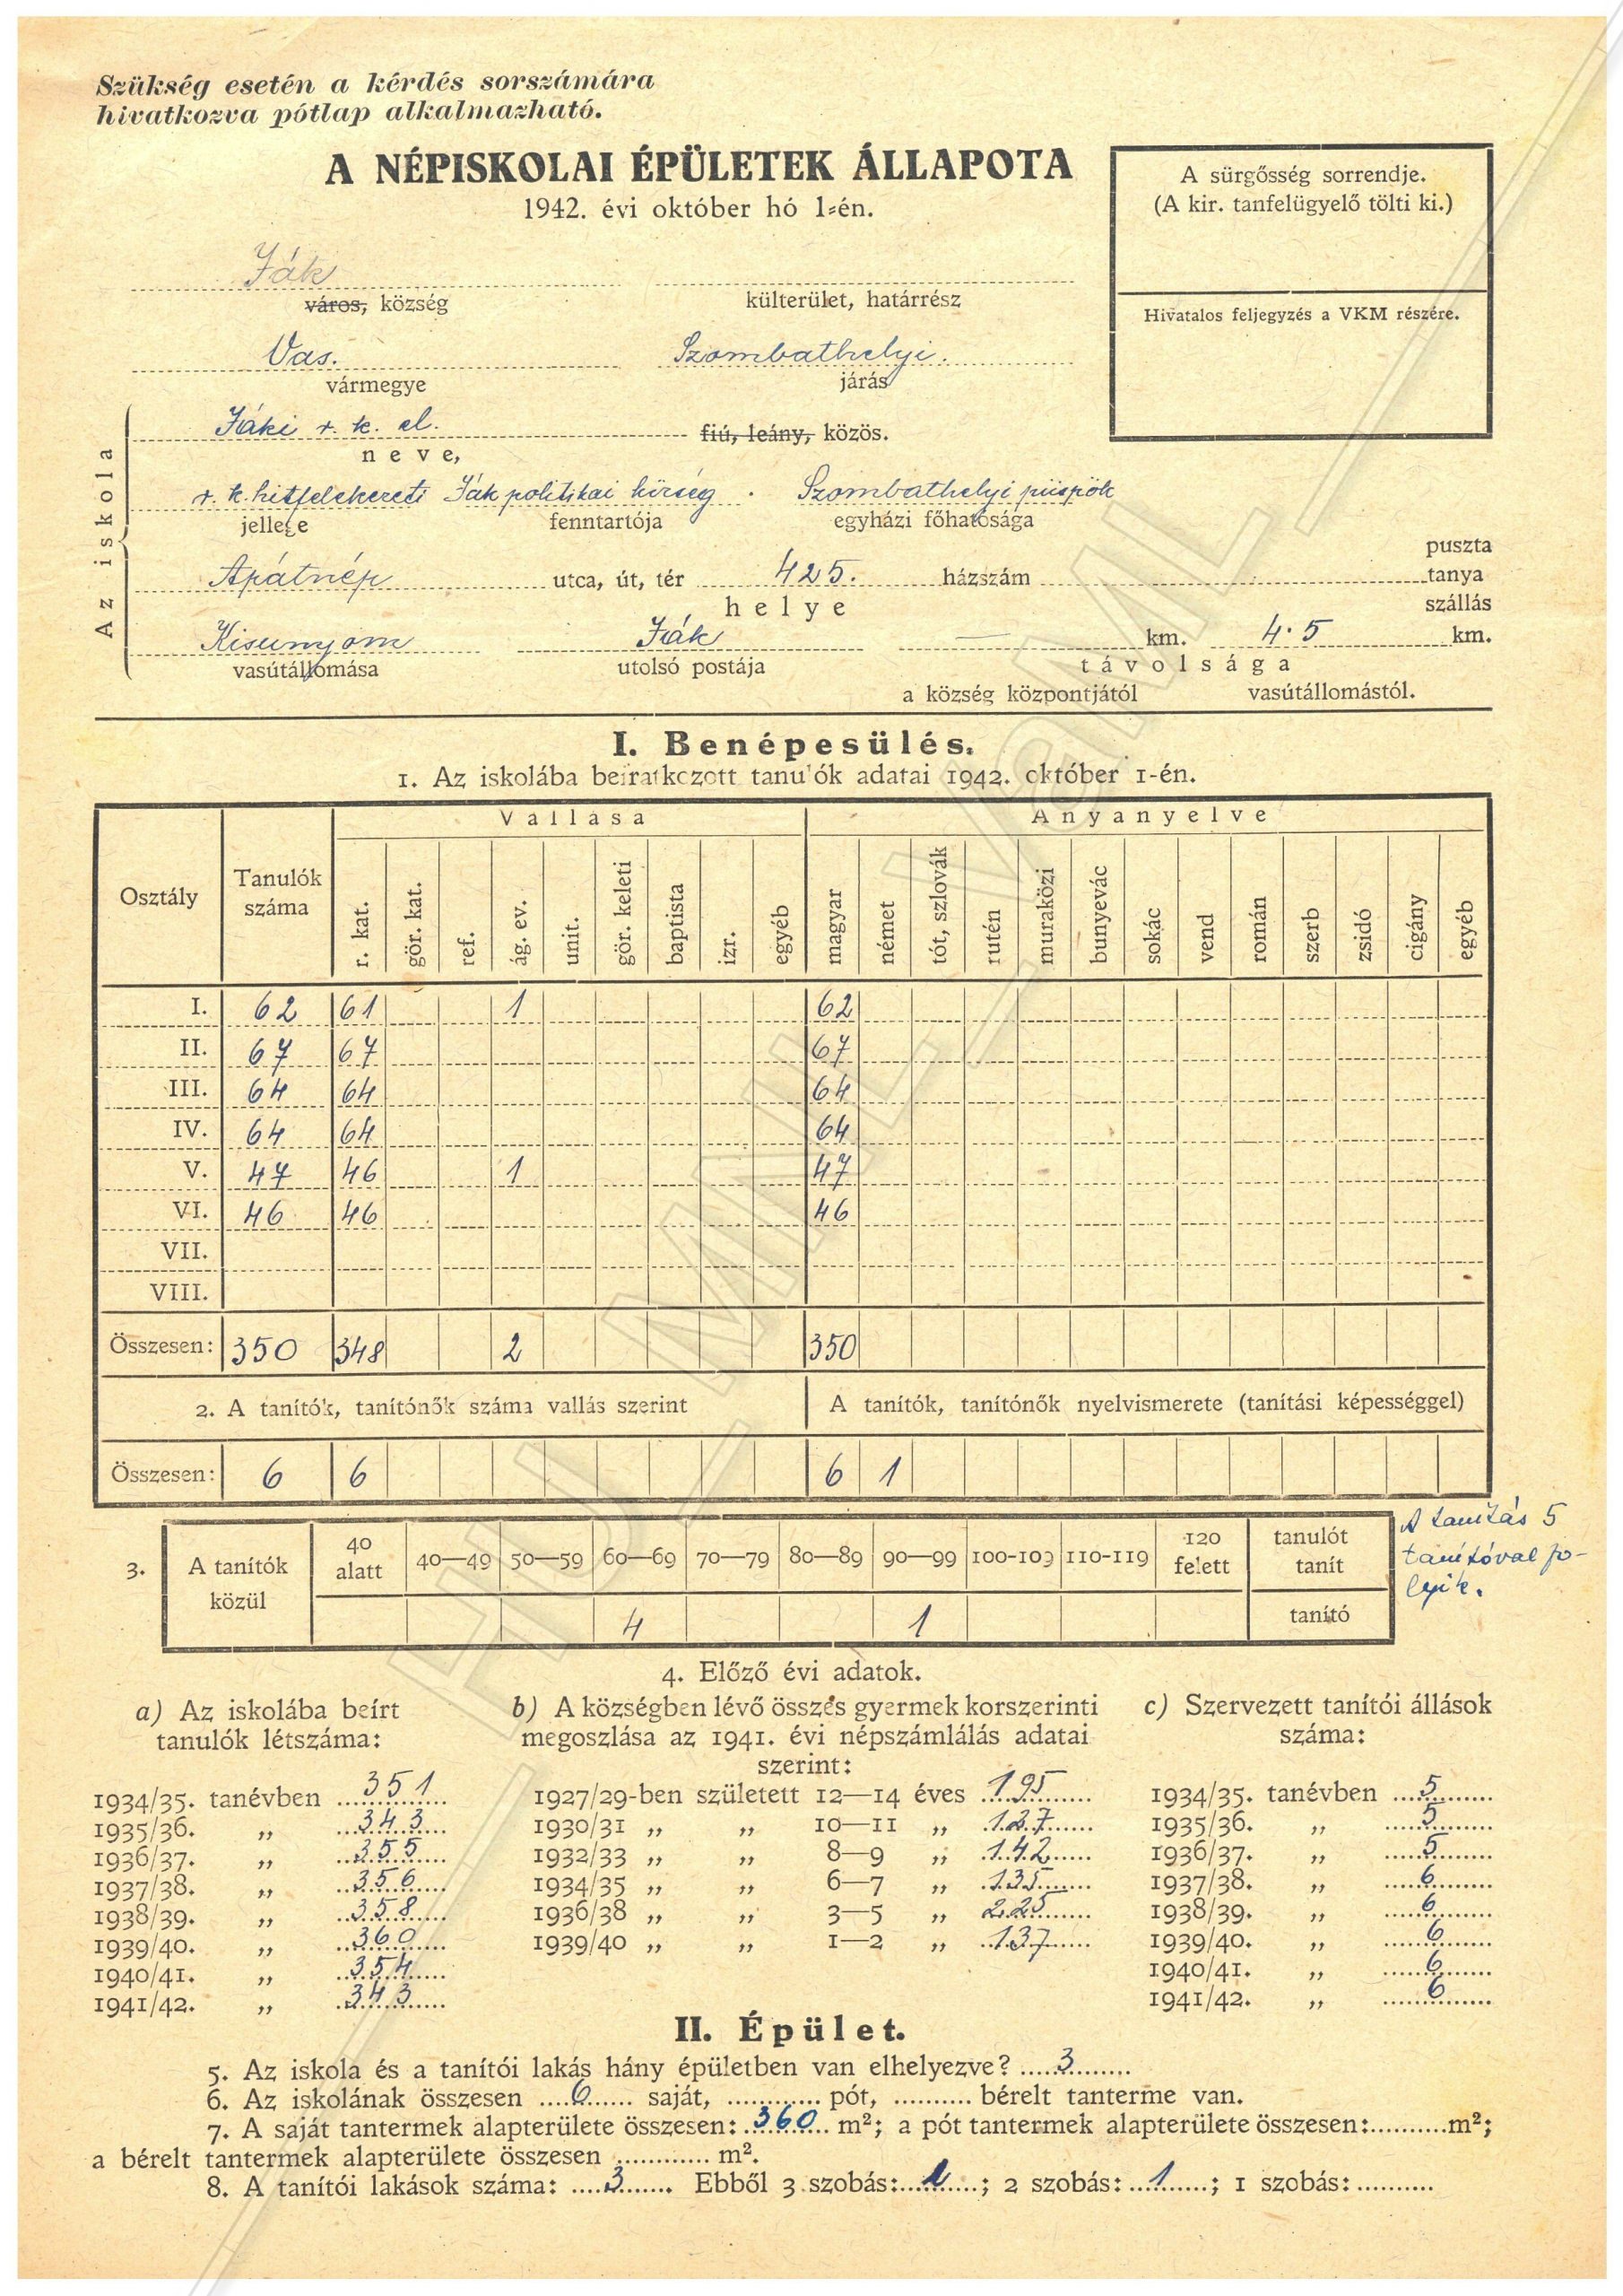 Szükség esetén a kérdés sorszámára
hivatkozva pótlap alkalmazható.
A NÉPISKOLAI ÉPÜLETEK ÁLLAPOTA
1942. évi október hó 1-én.
A sürgősség sorrendje.
(A kir. tanfelügyelő tölti ki.)
Hivatalos feljegyzés a VKM részére.
Ják
város, község
külterület, határrész
Vas.
vármegye
Szombathelyi.
járás
Az iskola
Jáki r. k. el.
fiú, leány, közös.
neve,
r. k. hitfelekezeti Ják politikai község . Szombathelyi püspök
jellege
fenntartója
egyházi főhatósága
puszta
Apátnép utca, út, tér 425. házszám tanya
helye
szállás
Kisunyom Ják — km. 4.5 km.
vasútállomása
utolsó postája
távolsága
a község központjától
vasútállomástól.
I. Benépesülés.
1. Az iskolába beiratkozott tanulók adatai 1942. október 1-én.
Vallása Anyanyelve
Osztály Tanulók száma r. kat. gör. kat. ref. ág. ev. unit. gör. keleti baptista izr. egyéb magyar német tót, szlovák rutén muraközi bunyevác sokác vend román szerb zsidó cigány egyéb
I. 62 61 1 62
II. 67 67 67
III. 64 64 64
IV. 64 64 64
V. 47 46 1 47
VI. 46 46 46
VII.
VIII.
Összesen: 350 348 2 350
2. A tanítók, tanítónők száma vallás szerint A tanítók, tanítónők nyelvismerete (tanítási képességgel)
Összesen: 6 6 6 1
3. A tanítók közül 40 alatt 40—49 50—59 60—69 70—79 80—89 90—99 100-109 110-119 120 felett tanulót tanít
4 1 tanító
A tanítás 5
tanítóval fo-
lyik.
4. Előző évi adatok.
a) Az iskolába beírt
tanulók létszáma:
1934/35. tanévben 351
1935/36. „ 343
1936/37. „ 355
1937/38. „ 356
1938/39. „ 358
1939/40. „ 360
1940/41. „ 354
1941/42. „ 343
b) A községben lévő összes gyermek korszerinti
megoszlása az 1941. évi népszámlálás adatai
szerint:
1927/29-ben született 12—14 éves 195
1930/31 „ „ 10—11 „ 137
1932/33 „ „ 8—9 „ 142
1934/35 „ „ 6—7 „ 135
1936/38 „ „ 3—5 „ 225
1939/40 „ „ 1—2 „ 137
c) Szervezett tanítói állások
száma:
1934/35. tanévben 5
1935/36. „ 5
1936/37. „ 5
1937/38. „ 6
1938/39. „ 6
1939/40. „ 6
1940/41. „ 6
1941/42. „ 6
II. Épület.
5. Az iskola és a tanítói lakás hány épületben van elhelyezve? 3
6. Az iskolának összesen 6 saját, pót, bérelt tanterme van.
7. A saját tantermek alapterülete összesen: 360 m²; a pót tantermek alapterülete összesen: m²;
a bérelt tantermek alapterülete összesen m².
8. A tanítói lakások száma: 3 Ebből 3 szobás: ; 2 szobás: 1 ; 1 szobás:
HU_MNL_VaML